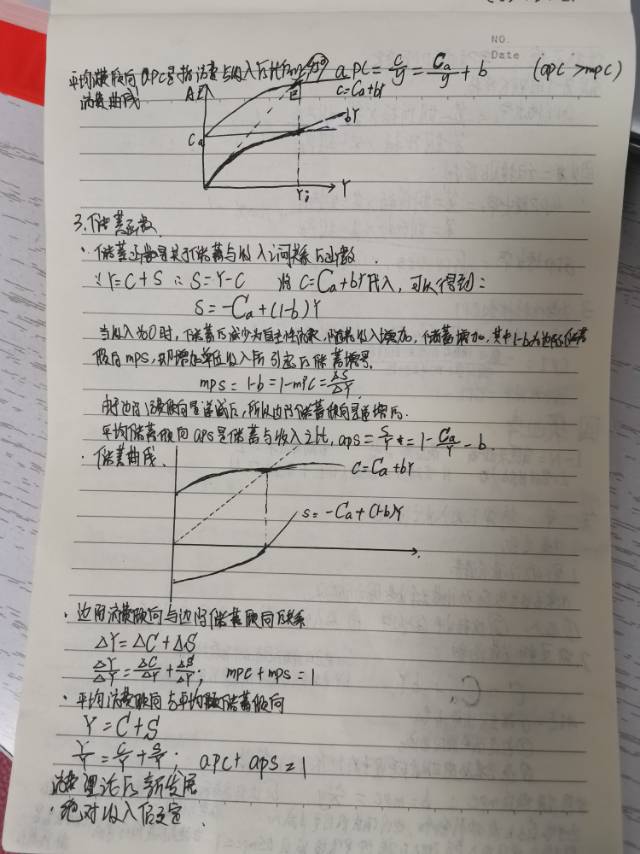 NO.
Date
平均消费倾向 apc是指消费与收入之比
apc = C/y = Ca/y + b (apc > mpc)
消费曲线
AE
45°
E
C=Ca+bY
bY
Ca
Yi
Y
3.储蓄函数
·储蓄函数是关于储蓄与收入之间关系的函数.
∵Y=C+S ∴S=Y-C 将C=Ca+bY代入,可以得到:
S=-Ca+(1-b)Y
当收入为0时,储蓄的减少为自主性消费,随着收入增加,储蓄增加,其中1-b为边际储蓄
倾向mps,即增加单位收入所引起的储蓄增量.
mps=1-b=1-mpc=ΔS/ΔY.
由于边际消费倾向是递减的,所以边际储蓄倾向是递增的.
平均储蓄倾向aps是储蓄与收入之比,aps=S/Y=1-Ca/Y-b.
·储蓄曲线.
C=Ca+bY
S=-Ca+(1-b)Y
·边际消费倾向与边际储蓄倾向的关系
ΔY=ΔC+ΔS
ΔY/ΔY=ΔC/ΔY+ΔS/ΔY; mpc+mps=1
·平均消费倾向与平均储蓄倾向
Y=C+S
Y/Y=C/Y+S/Y; apc+aps=1
消费理论的新发展
·绝对收入假定